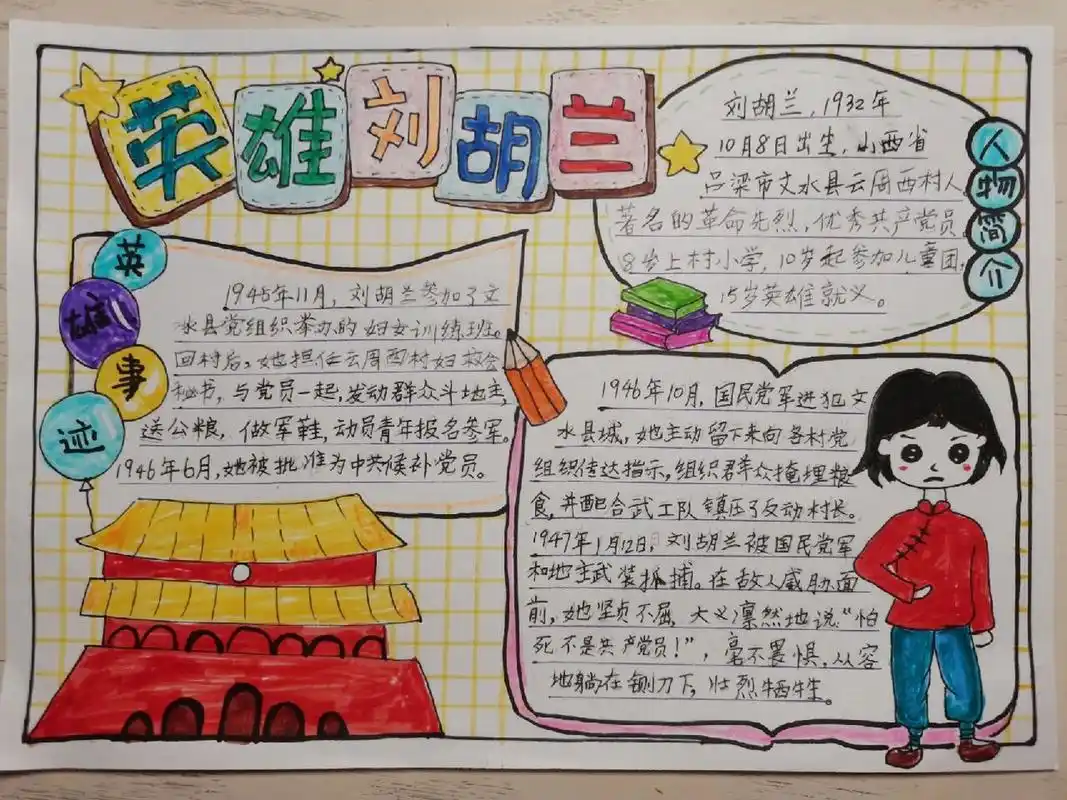 英雄刘胡兰
人物简介
刘胡兰,1932年
10月8日出生,山西省
吕梁市文水县云周西村人
著名的革命先烈,优秀共产党员
8岁上村小学,10岁起参加儿童团,
15岁英雄就义。
英雄事迹
1945年11月,刘胡兰参加了文
水县党组织举办的妇女训练班。
回村后,她担任云周西村妇救会
秘书,与党员一起,发动群众斗地主,
送公粮,做军鞋,动员青年报名参军。
1946年6月,她被批准为中共候补党员。
1946年10月,国民党军进犯文
水县城,她主动留下来向各村党
组织传达指示,组织群众掩埋粮
食,并配合武工队镇压了反动村长。
1947年1月12日,刘胡兰被国民党军
和地主武装抓捕。在敌人威胁面
前,她坚贞不屈,大义凛然地说"怕
死不是共产党员!",毫不畏惧,从容
地躺在铡刀下,壮烈牺牲。